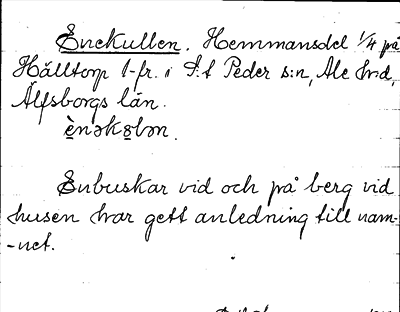 Enekullen. Hemmansdel 1/4 på
Hålltorp 1-fr. i S:t Peder s:n, Ale hd,
Älfsborgs län.
Enbuskar vid och på berg vid
husen har gett anledning till nam-
-net.